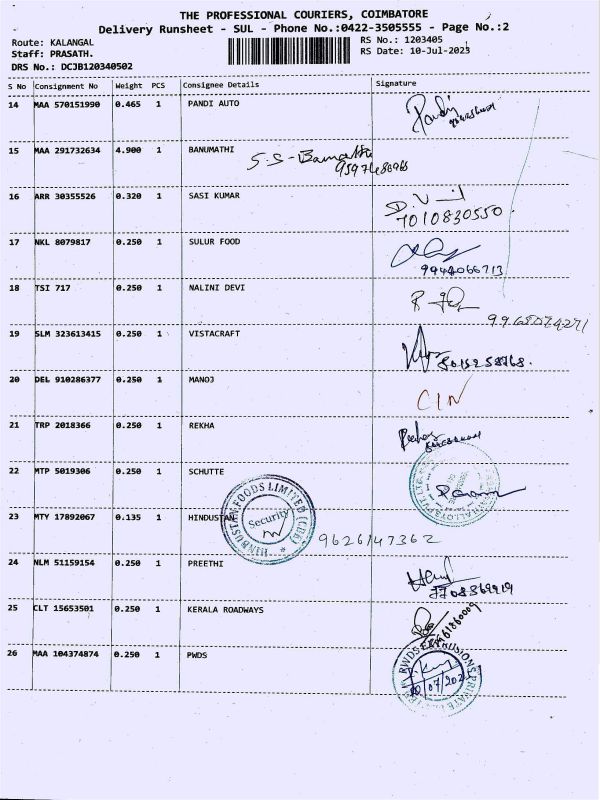 THE PROFESSIONAL COURIERS, COIMBATORE
Delivery Runsheet - SUL - Phone No.:0422-3505555 - Page No.:2
Route: KALANGAL
Staff: PRASATH.
DRS No.: DCJB120340502
RS No.: 1203405
RS Date: 10-Jul-2023
S No Consignment No Weight PCS Consignee Details Signature
14 MAA 570151990 0.465 1 PANDI AUTO
15 MAA 291732634 4.900 1 BANUMATHI
16 ARR 30355526 0.320 1 SASI KUMAR
7010830550
17 NKL 8079817 0.250 1 SULUR FOOD
9944066713
18 TSI 717 0.250 1 NALINI DEVI
19 SLM 323613415 0.250 1 VISTACRAFT
20 DEL 910286377 0.250 1 MANOJ
CIN
21 TRP 2018366 0.250 1 REKHA
22 MTP 5019306 0.250 1 SCHUTTE
23 MTY 17892067 0.135 1 HINDUSTAN
HINDUSTAN FOODS LIMITED (CBE)
Security
9626147362
24 NLM 51159154 0.250 1 PREETHI
25 CLT 15653501 0.250 1 KERALA ROADWAYS
26 MAA 104374874 0.250 1 PWDS